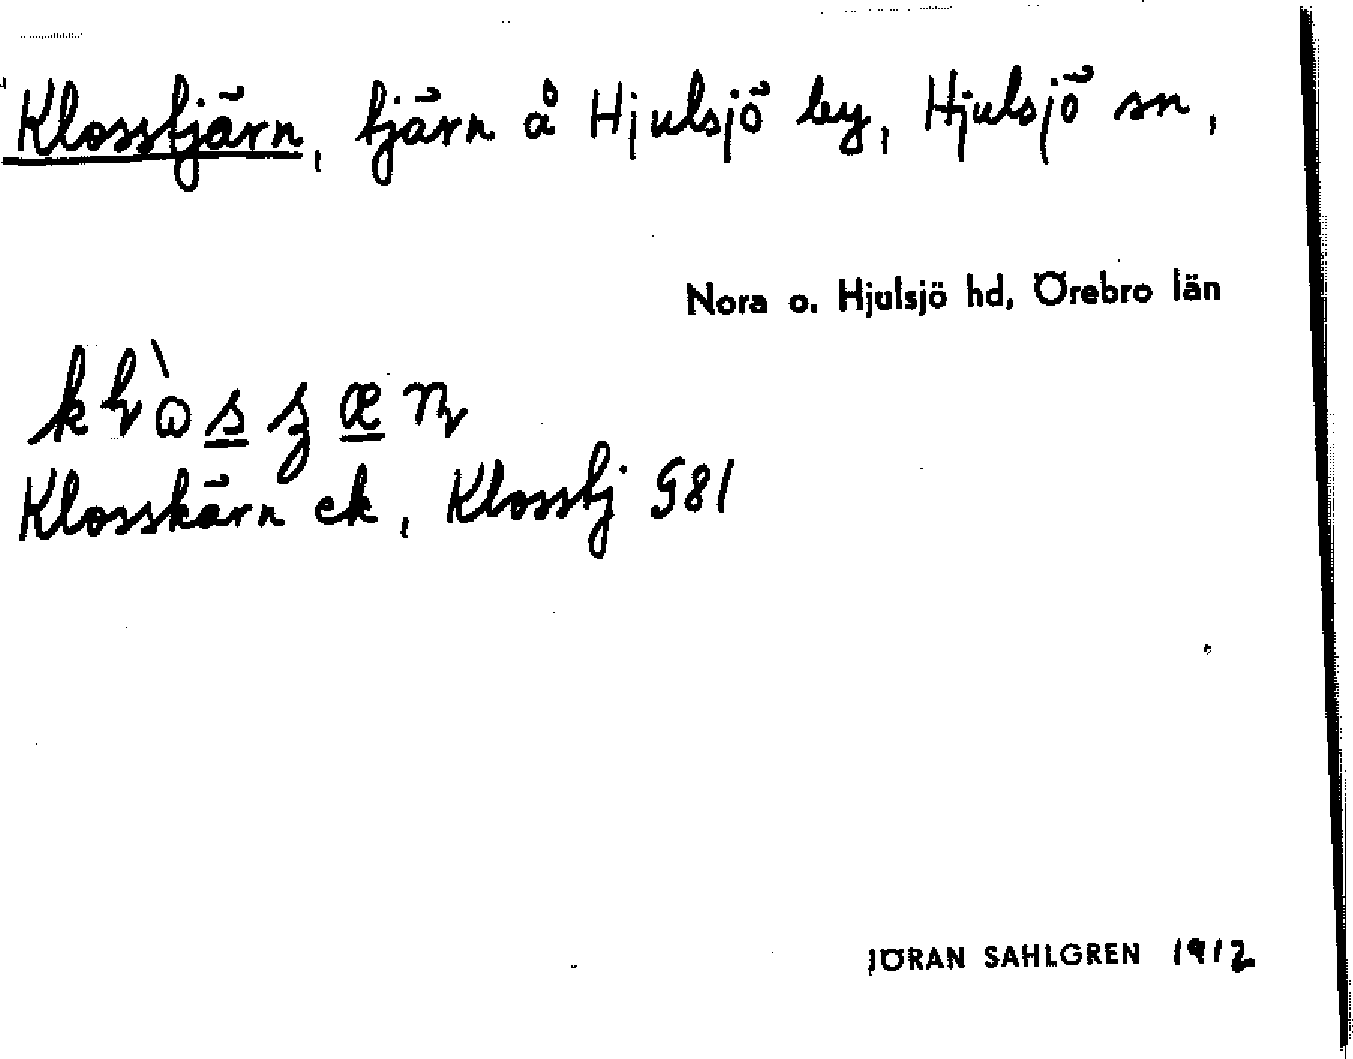 Klosstjärn, tjärn å Hjulsjö by, Hjulsjö sn,
Nora o. Hjulsjö hd, Örebro län
Klosskärn ek, Klosstj G81
JÖRAN SAHLGREN 1912